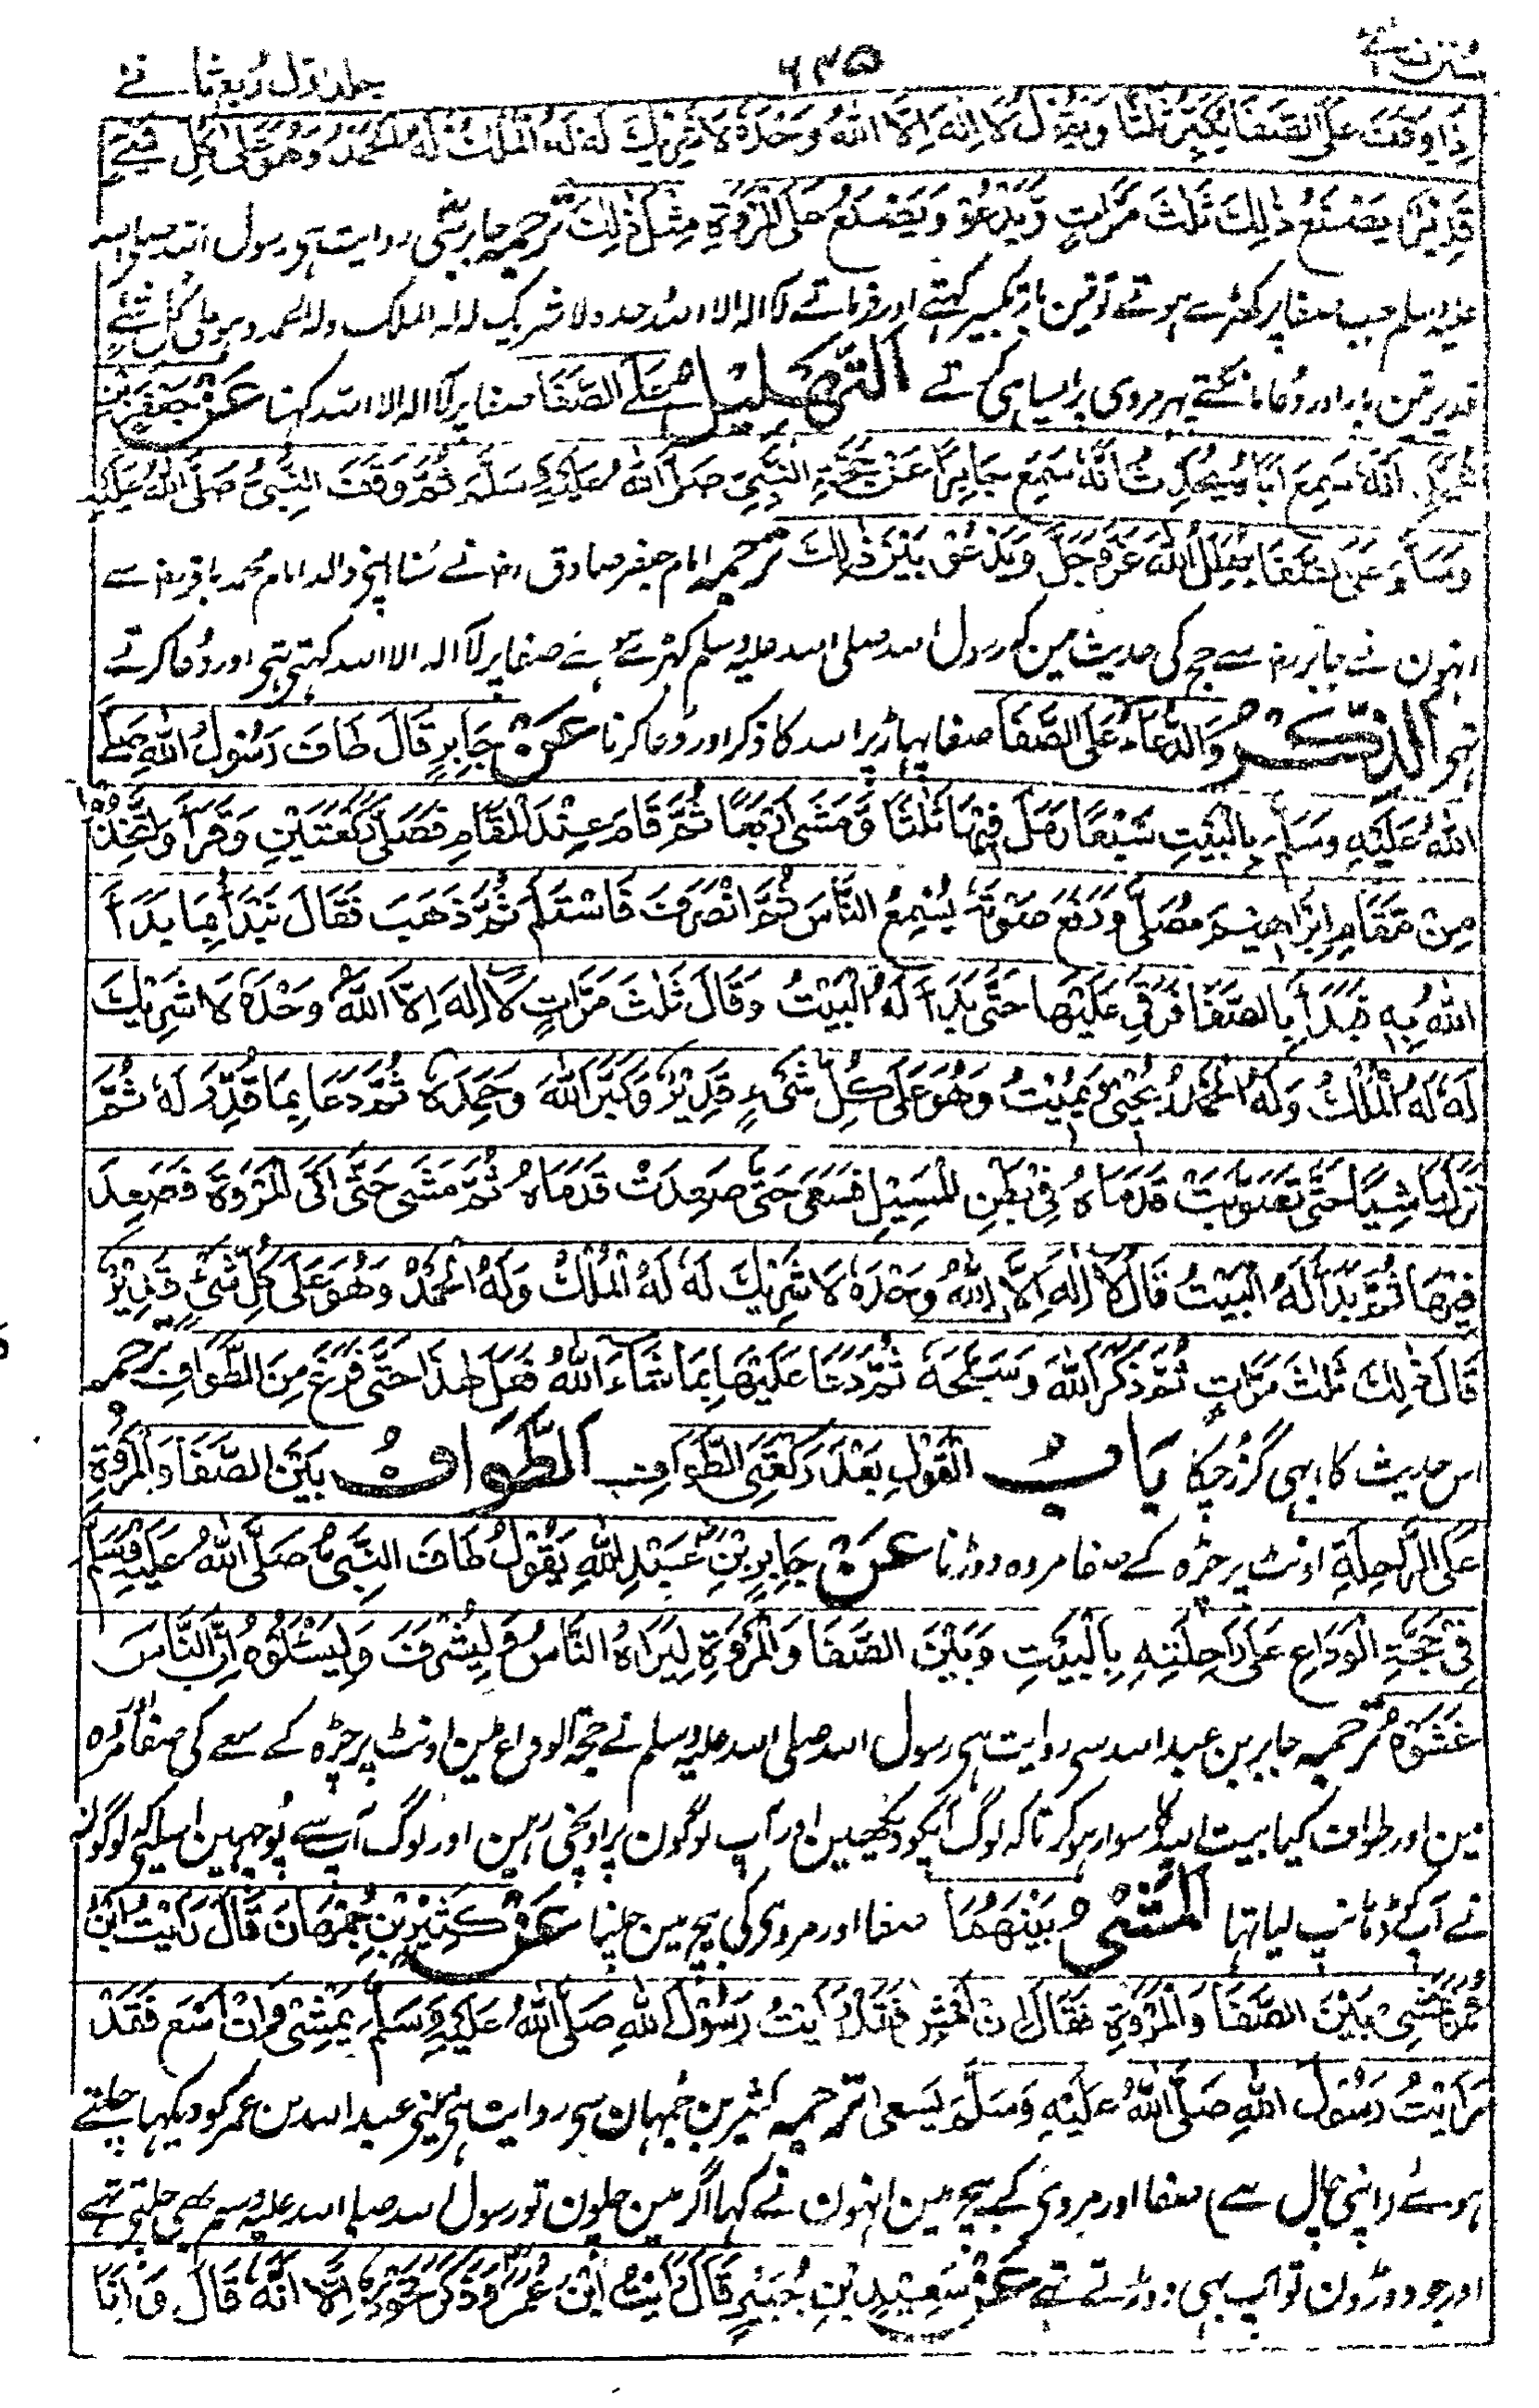 سنن نسائی ۶۳۵ جلد اول ربع ثانے
اِذَا وَقَفَ عَلَى الصَّفَا يُكَبِّرُ ثَلٰثًا وَيَقُوْلُ لَا اِلٰهَ اِلَّا اللهُ وَحْدَهٗ لَا شَرِيْكَ لَهٗ لَهُ الْمُلْكُ وَلَهُ الْحَمْدُ وَهُوَ عَلٰى كُلِّ شَيْءٍ
قَدِيْرٌ يَصْنَعُ ذٰلِكَ ثَلٰثَ مَرَّاتٍ وَيَدْعُوْ وَيَصْنَعُ عَلَى الْمَرْوَةِ مِثْلَ ذٰلِكَ ترجمہ جابر رضی روایت ہی رسول اللہ صلی اللہ
علیہ وسلم جب صفا پر کھڑے ہوتے تو تین بار تکبیر کہتے اور فرماتے لا الہ الا اللہ وحدہ لا شریک لہ لہ الملک ولہ الحمد وہو علی کل شئے
قدیر تین بار اور دُعا مانگتے پہر مروی پر ایسا ہی کرتے اَلتَّهْلِيْلُ عَلَى الصَّفَا صفا پر لا الہ الا اللہ کہنا عَنْ جَعْفَرِ بْنِ
مُحَمَّدٍ اَنَّهٗ سَمِعَ اَبَاهُ يُحَدِّثُ اَنَّهٗ سَمِعَ جَابِرًا عَنْ حَجَّةِ النَّبِيِّ صَلَّى اللهُ عَلَيْهِ وَسَلَّمَ ثُمَّ وَقَفَ النَّبِيُّ صَلَّى اللهُ عَلَيْهِ
وَسَلَّمَ عَلَى الصَّفَا يُهَلِّلُ اللهَ عَزَّ وَجَلَّ وَيَدْعُوْ بَيْنَ ذٰلِكَ ترجمہ امام جعفر صادق رضہ نے سُنا اپنے والد امام محمد باقر رضہ سے
انہون نے جابر رضہ سے حج کی حدیث مین کہ رسول اللہ صلی اللہ علیہ وسلم کھڑے ہوئے صفا پر لا الہ الا اللہ کہتی تہی اور دُعا کرتے
تہی الذِّكْرُ وَالدُّعَاءُ عَلَى الصَّفَا صفا پہاڑ پر اللہ کا ذکر اور دعا کرنا عَنْ جَابِرٍ قَالَ طَافَ رَسُوْلُ اللهِ صَلَّى
اللهُ عَلَيْهِ وَسَلَّمَ بِالْبَيْتِ سَبْعًا رَمَلَ فِيْهَا ثَلٰثًا وَمَشٰى اَرْبَعًا ثُمَّ قَامَ عِنْدَ الْمَقَامِ فَصَلّٰى رَكْعَتَيْنِ وَقَرَاَ وَاتَّخِذُوْا
مِنْ مَّقَامِ اِبْرَاهِيْمَ مُصَلًّى وَرَفَعَ صَوْتَهٗ يُسْمِعُ النَّاسَ ثُمَّ انْصَرَفَ فَاسْتَلَمَ ثُمَّ ذَهَبَ فَقَالَ نَبْدَاُ بِمَا بَدَاَ
اللهُ بِهٖ فَبَدَاَ بِالصَّفَا فَرَقِيَ عَلَيْهَا حَتّٰى بَدَاَ لَهُ الْبَيْتُ وَقَالَ ثَلٰثَ مَرَّاتٍ لَا اِلٰهَ اِلَّا اللهُ وَحْدَهٗ لَا شَرِيْكَ
لَهٗ لَهُ الْمُلْكُ وَلَهُ الْحَمْدُ يُحْيِيْ وَيُمِيْتُ وَهُوَ عَلٰى كُلِّ شَيْءٍ قَدِيْرٌ وَكَبَّرَ اللهَ وَحَمِدَهٗ ثُمَّ دَعَا بِمَا قُدِّرَ لَهٗ ثُمَّ
نَزَلَ مَاشِيًا حَتّٰى تَصَوَّبَتْ قَدَمَاهُ فِيْ بَطْنِ الْمَسِيْلِ فَسَعٰى حَتّٰى صَعِدَتْ قَدَمَاهُ ثُمَّ مَشٰى حَتّٰى اَتَى الْمَرْوَةَ فَصَعِدَ
فِيْهَا ثُمَّ بَدَاَ لَهُ الْبَيْتُ قَالَ لَا اِلٰهَ اِلَّا اللهُ وَحْدَهٗ لَا شَرِيْكَ لَهٗ لَهُ الْمُلْكُ وَلَهُ الْحَمْدُ وَهُوَ عَلٰى كُلِّ شَيْءٍ قَدِيْرٌ
قَالَ ذٰلِكَ ثَلٰثَ مَرَّاتٍ ثُمَّ ذَكَرَ اللهَ وَسَبَّحَهٗ ثُمَّ دَعَا عَلَيْهَا بِمَا شَاءَ اللهُ فَعَلَ هٰذَا حَتّٰى فَرَغَ مِنَ الطَّوَافِ ترجمہ
اس حدیث کا ابہی گزر چکا بَابُ الْقَوْلِ بَعْدَ رَكْعَتَيِ الطَّوَافِ الطَّوَافُ بَيْنَ الصَّفَا وَالْمَرْوَةِ
عَلَى الرَّاحِلَةِ اونٹ پر چڑہ کے صفا مروہ دوڑنا عَنْ جَابِرِ بْنِ عَبْدِ اللهِ يَقُوْلُ طَافَ النَّبِيُّ صَلَّى اللهُ عَلَيْهِ وَسَلَّمَ
فِيْ حَجَّةِ الْوَدَاعِ عَلٰى رَاحِلَتِهٖ بِالْبَيْتِ وَبَيْنَ الصَّفَا وَالْمَرْوَةِ لِيَرَاهُ النَّاسُ وَلِيُشْرِفَ وَلِيَسْئَلُوْهُ اِنَّ النَّاسَ
غَشُوْهُ ترجمہ جابر بن عبد اللہ سی روایت ہی رسول اللہ صلی اللہ علیہ وسلم نے حجۃ الوداع مین اونٹ پر چڑہ کے سعے کی صفا اور مروہ
مین اور طواف کیا بیت اللہ کا سوار ہو کر تاکہ لوگ آپکو دیکھین اور آپ لوگون پر اونچی رہین اور لوگ آپ سے پوچہین اسلیے کہ لوگون
نے آپکو ڈہانپ لیا تہا الْمَشْيُ بَيْنَهُمَا صفا اور مروی کی بیچ مین چلنا عَنْ كَثِيْرِ بْنِ جُمْهَانَ قَالَ رَاَيْتُ ابْنَ
عُمَرَ يَمْشِيْ بَيْنَ الصَّفَا وَالْمَرْوَةِ فَقَالَ اِنْ اَمْشِ فَقَدْ رَاَيْتُ رَسُوْلَ اللهِ صَلَّى اللهُ عَلَيْهِ وَسَلَّمَ يَمْشِيْ وَاِنْ اَسْعَ فَقَدْ
رَاَيْتُ رَسُوْلَ اللهِ صَلَّى اللهُ عَلَيْهِ وَسَلَّمَ يَسْعٰى ترجمہ کثیر بن جُمہان سی روایت ہی مینے عبد اللہ بن عمر کو دیکہا چلتے
ہوئے (اپنی چال سے) صفا اور مروی کے بیچ مین انہون نے کہا اگر مین چلون تو رسول اللہ صلی اللہ علیہ وسلم بھی چلتی تہے
اور جو دوڑون تو آپ بہی دوڑتے تہے عَنْ سَعِيْدِ بْنِ جُبَيْرٍ قَالَ رَاَيْتُ ابْنَ عُمَرَ وَذَكَرَ نَحْوَهٗ اِلَّا اَنَّهٗ قَالَ وَاَنَا